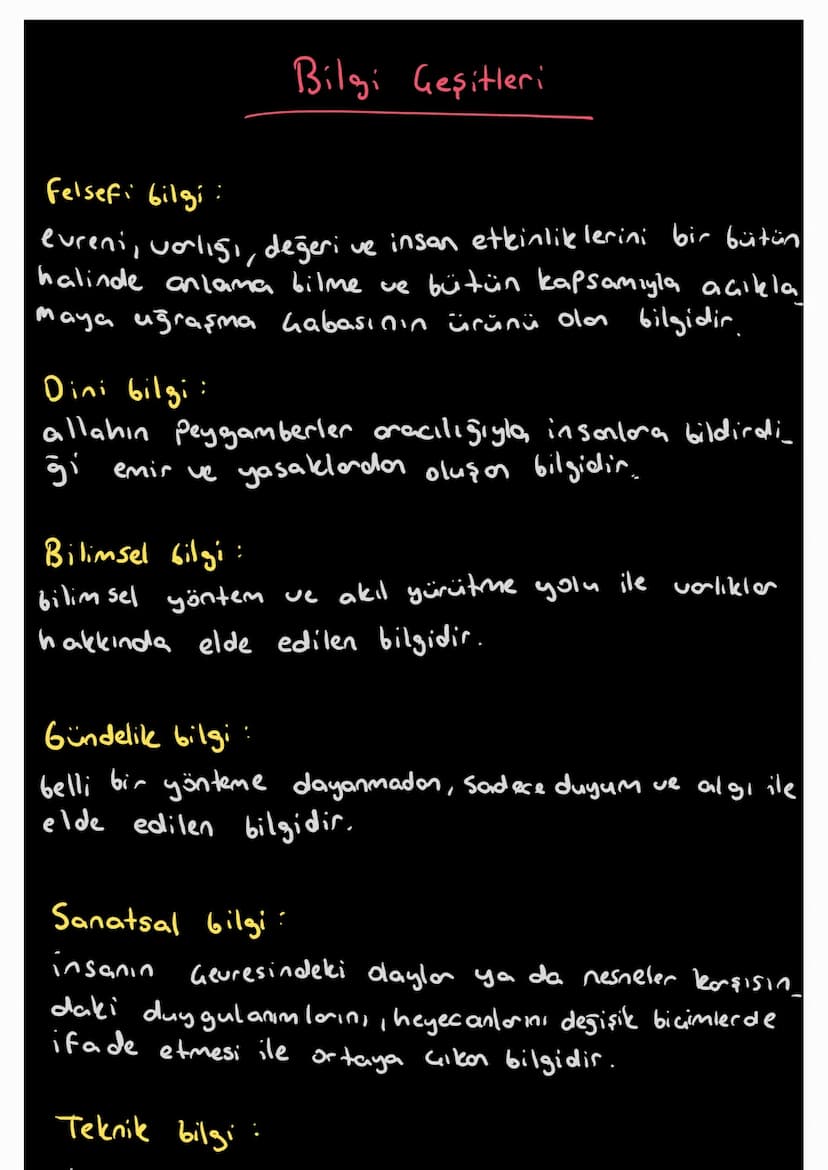 Bilgi Çeşitleri
Felsefi bilgi :
evreni, varlığı, değeri ve insan etkinliklerini bir bütün
halinde anlama bilme ve bütün kapsamıyla açıkla_
maya uğraşma çabasının ürünü olan bilgidir.
Dini bilgi :
allahın peygamberler aracılığıyla, insanlara bildirdi_
ği emir ve yasaklardan oluşan bilgidir.
Bilimsel bilgi :
bilimsel yöntem ve akıl yürütme yolu ile varlıklar
hakkında elde edilen bilgidir.
Gündelik bilgi :
belli bir yönteme dayanmadan, sadece duyum ve algı ile
elde edilen bilgidir.
Sanatsal bilgi :
insanın çevresindeki olaylar ya da nesneler karşısın_
daki duygulanımlarını, heyecanlarını değişik biçimlerde
ifade etmesi ile ortaya çıkan bilgidir.
Teknik bilgi :